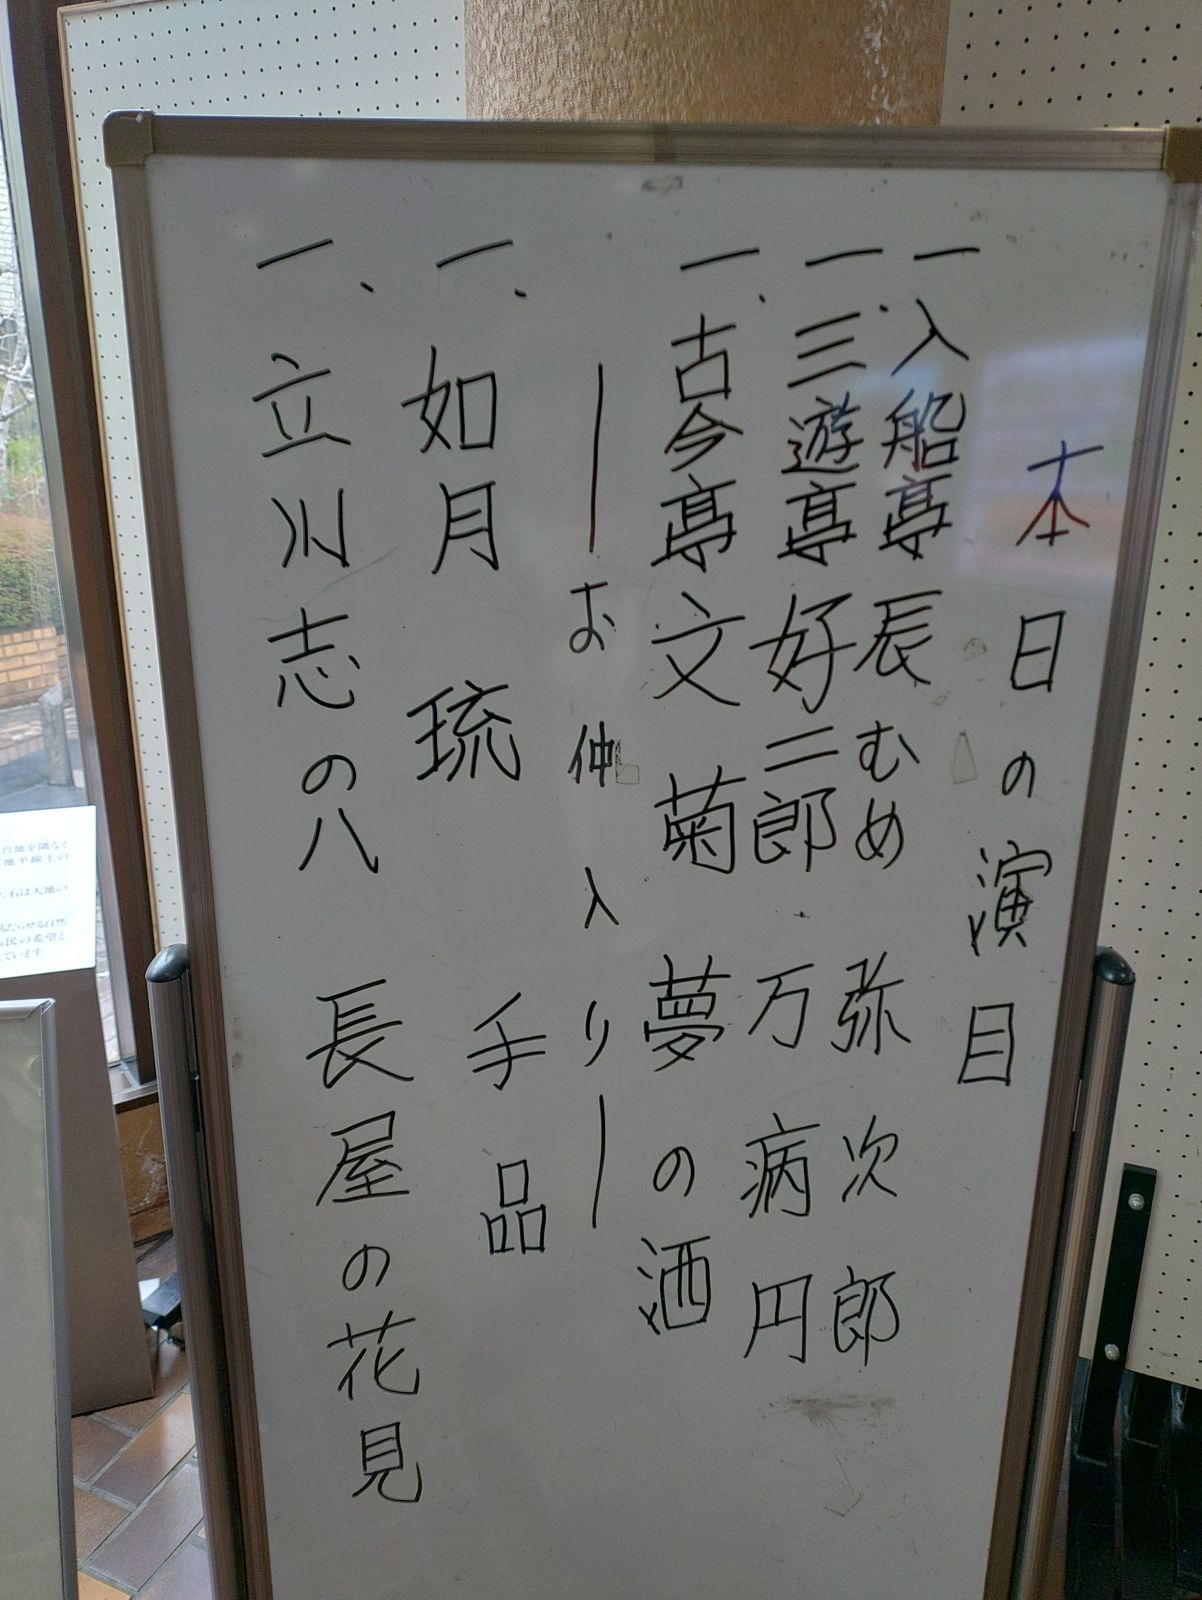 本日の演目
一、入船亭辰むめ 弥次郎
一、三遊亭好二郎 万病円
一、古今亭文菊 夢の酒
―お仲入り―
一、如月琉 手品
一、立川志の八 長屋の花見